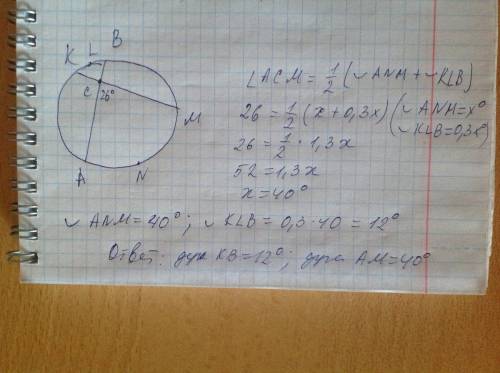 K L B
C 26°
M
A N
∠ACM = 1/2 (◡ANM + ◡KLB)
26 = 1/2 (x + 0,3x) (◡ANM = x°
◡KLB = 0,3x°)
26 = 1/2 · 1,3x
52 = 1,3x
x = 40°
◡ANM = 40°; ◡KLB = 0,3·40 = 12°
Ответ: дуга KB = 12°; дуга AM = 40°